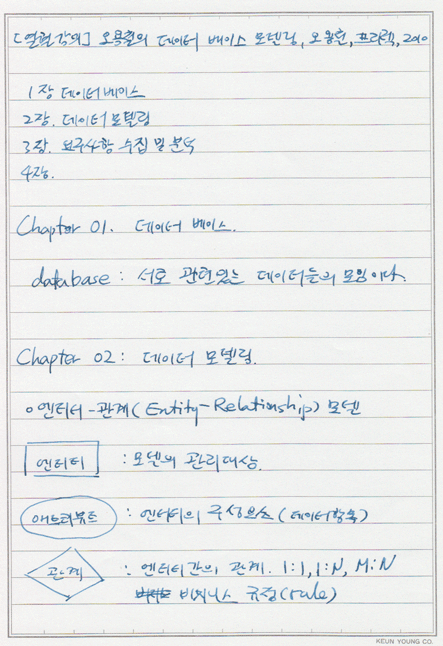 [열혈강의] 오용철의 데이터 베이스 모델링, 오용철, 프리렉, 2010
1장 데이터베이스
2장. 데이터모델링
3장. 요구사항 수집 및 분석
4장.
Chapter 01. 데이터 베이스.
database : 서로 관련있는 데이터들의 모임이다.
Chapter 02 : 데이터 모델링.
o 엔터티-관계(Entity-Relationship) 모델
엔터티 : 모델의 관리대상.
애트리뷰트 : 엔터티의 구성요소(데이터항목)
관계 : 엔터티간의 관계. 1:1, 1:N, M:N
비지니스 규정(rule)
KEUN YOUNG CO.